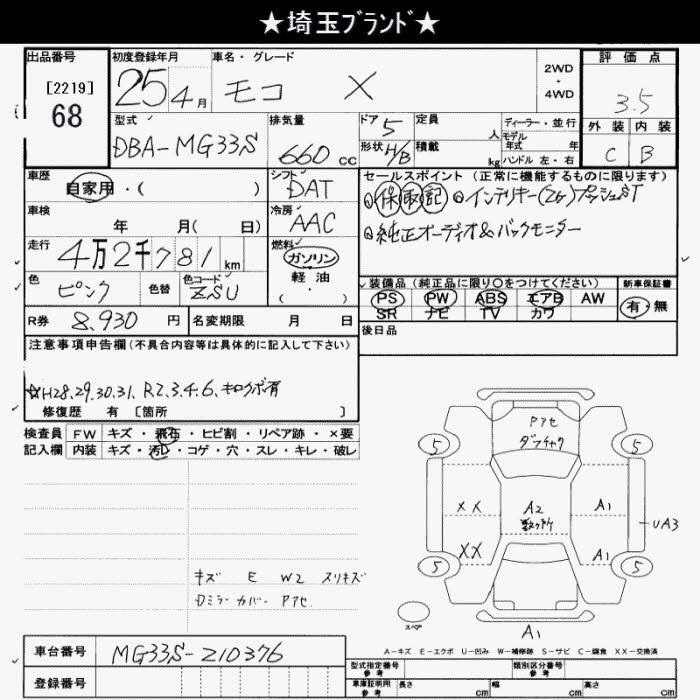 ★埼玉ブランド★
出品番号
[2219]
68
初度登録年月
25年4月
車名・グレード
モコ X
2WD
・
4WD
評価点
3.5
外装 内装
C B
型式
DBA-MG33S
排気量
660 cc
ドア 5
形状 H/B
定員 人
積載 kg
ディーラー・並行
モデル年式 年
ハンドル 左・右
車歴
自家用・( )
シフト
DAT
セールスポイント (正常に機能するものに限ります)
◎保 取 記 ◎インテリキー(2ケ)プッシュST
◎純正オーディオ&バックモニター
車検
年 月( 日)
冷房
AAC
走行
4万2千781 km
燃料
ガソリン
軽油
( ・ )
色
ピンク
色替
色コード
ZSU
装備品 (純正品に限り○をつけてください)
PS PW ABS エアB AW
SR ナビ TV カワ
新車保証書
有・無
R券 8,930 円
名変期限 月 日
後日品
注意事項申告欄(不具合内容等は具体的に記入して下さい)
☆H28.29.30.31. R2.3.4.6.キロクボ有
修復歴 有 [箇所 ]
検査員 FW キズ・飛石・ヒビ割・リペア跡・×要
記入欄 内装 キズ・汚レ・コゲ・穴・スレ・キレ・破レ
Pアセ
ダフ
5 5
XX A2 A1
数ヶ所
UA3
XX A1
5 5
キズ E W2 スリキズ
Dミラーカバー Pアセ
スペア
A1
A－キズ E－エクボ U－凹み W－補修跡 S－サビ C－腐食 XX－交換済
車台番号 MG33S-210376
登録番号
型式指定番号
参考
類別区分番号
参考
車庫証明用
参考
長さ cm
幅 cm
高さ cm